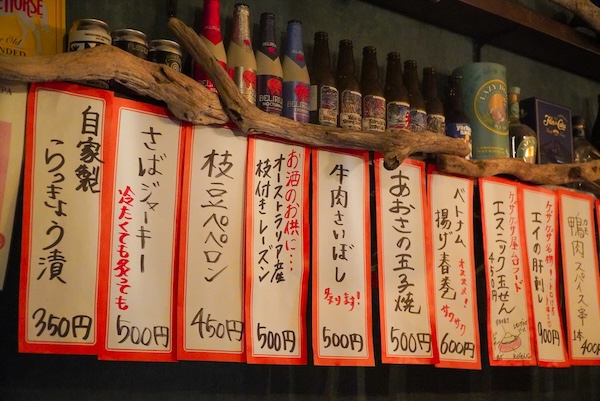 自家製
らっきょう漬
350円
さばジャーキー
冷たくても炙っても
500円
枝豆ペペロン
450円
お酒のお供に…
オーストラリア産
枝付きレーズン
500円
牛肉さいぼし
炙ります!
500円
あおさの玉子焼
500円
ベトナム
揚げ春巻
オススメ!
サクサク
600円
エスニック玉せん
450円
エイの肝刺し
900円
鴨肉スパイス串
1本
400